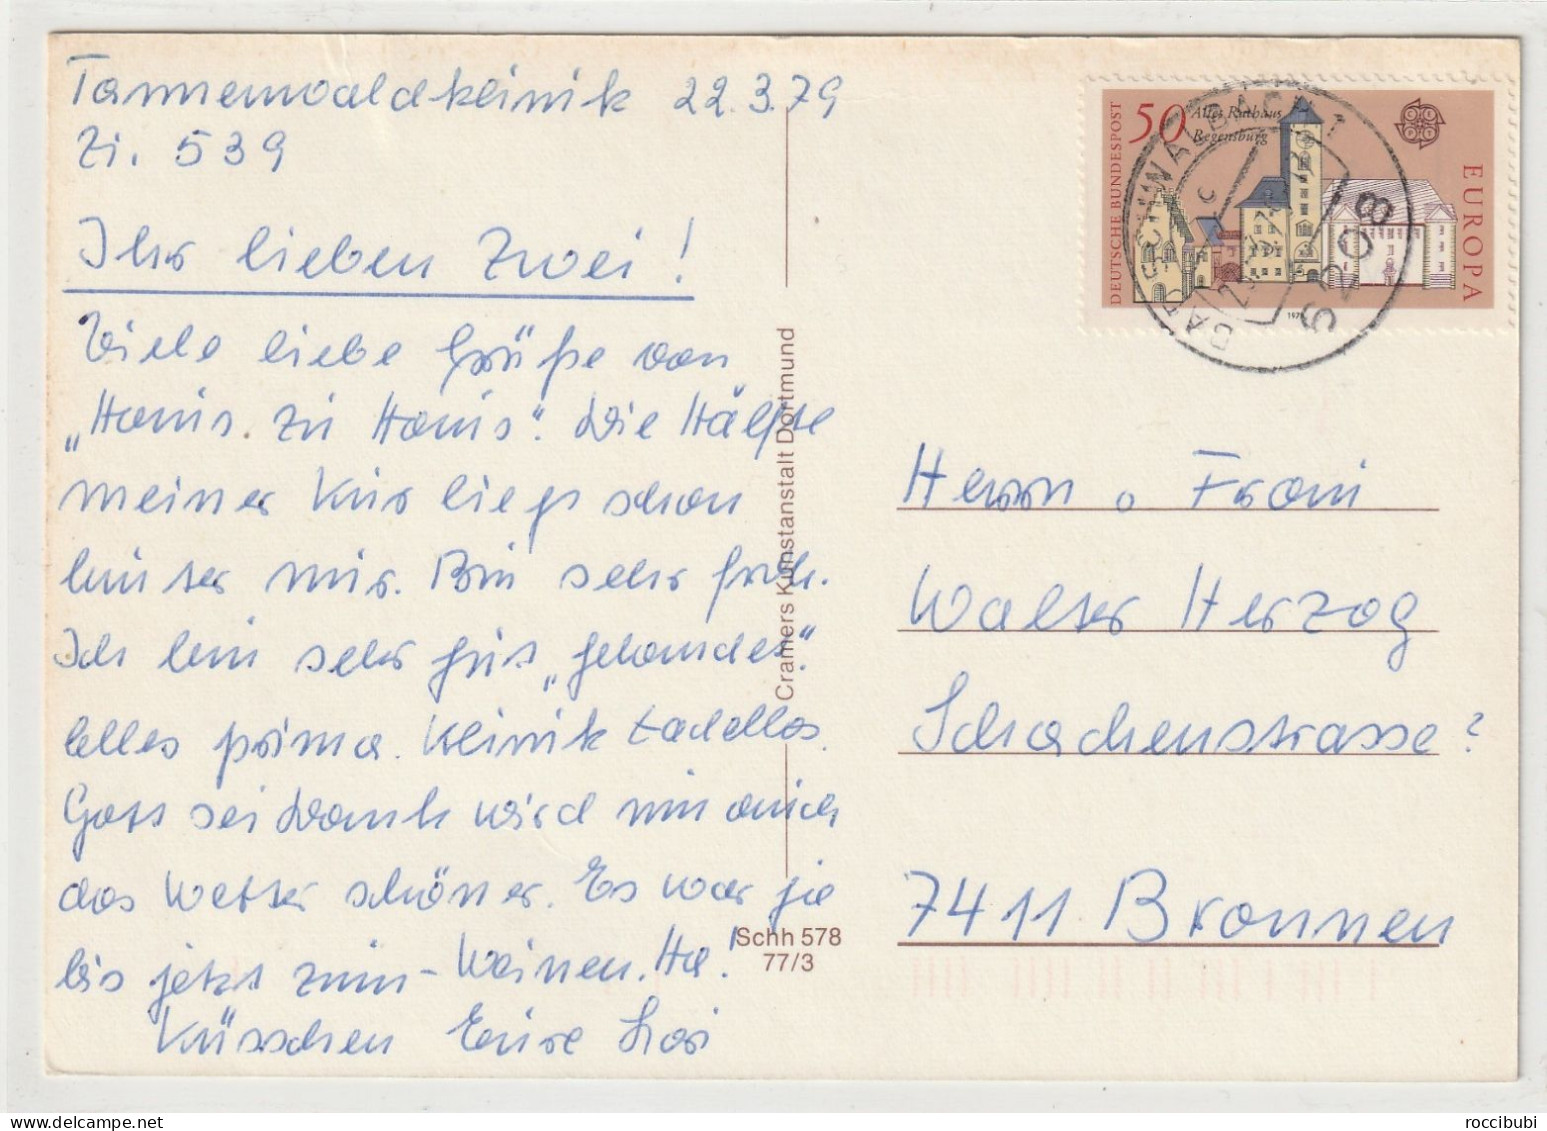 Tannenwaldklinik 22.3.79
Zi. 539
Ihr lieben Zwei!
Viele liebe Grüße von
„Haus zu Haus". Die Hälfte
meiner Kur liegt schon
hinter mir. Bin sehr froh.
Ich bin sehr gut „gelandet".
Alles prima. Klinik tadellos.
Gott sei Dank wird nun auch
das Wetter schöner. Es war ja
bis jetzt zum Weinen. Ha!
Küsschen Eure Lori
Cramers Kunstanstalt Dortmund
Schh 578
77/3
DEUTSCHE BUNDESPOST
50
Altes Rathaus
Regensburg
EUROPA
1978
BAD SCHWALBACH 1
5208
Herrn u Frau
Walter Herzog
Schachenstrasse?
7411 Bronnen
roccibubi